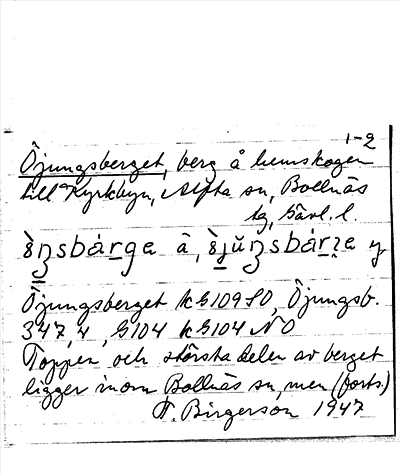 1-2
Öjungsberget, berg å hemskogen
till Kyrkbyn, Alfta sn, Bollnäs
tg, Gävl. l.
Öjungsberget kG109SO, Öjungsb.
347,4, G104 kG104 NO
Toppen och största delen av berget
ligger inom Bollnäs sn, men (forts.)
F. Birgerson 1947